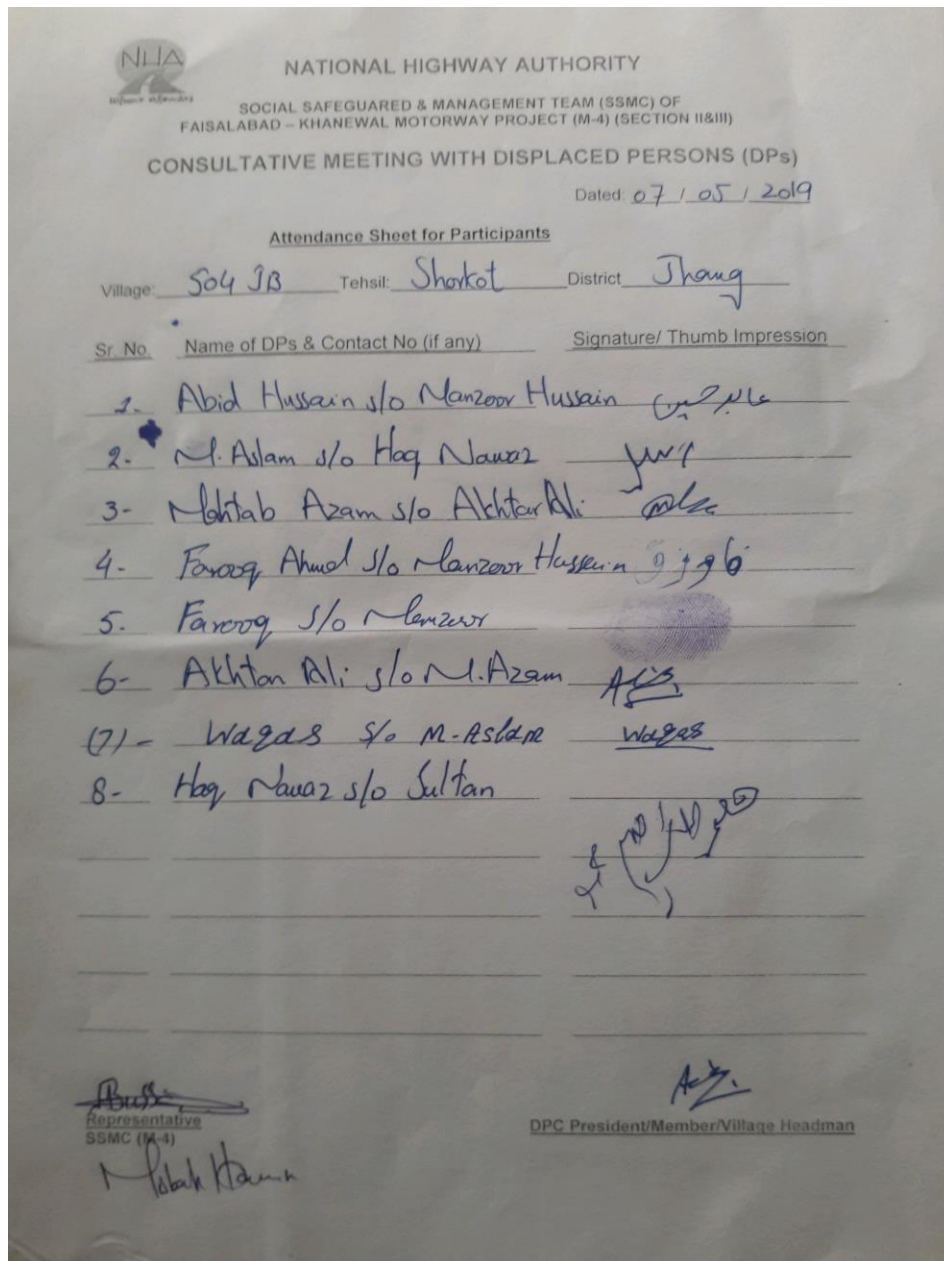 NHA
NATIONAL HIGHWAY AUTHORITY
SOCIAL SAFEGUARED & MANAGEMENT TEAM (SSMC) OF
FAISALABAD – KHANEWAL MOTORWAY PROJECT (M-4) (SECTION II&III)
CONSULTATIVE MEETING WITH DISPLACED PERSONS (DPs)
Dated: 07 / 05 / 2019
Attendance Sheet for Participants
Village: 504 JB Tehsil: Shorkot District Jhang
Sr. No. Name of DPs & Contact No (if any) Signature/ Thumb Impression
1- Abid Hussain s/o Manzoor Hussain عابد حسین
2- M. Aslam s/o Haq Nawaz
3- Mahtab Azam s/o Akhtar Ali
4- Farooq Ahmed s/o Manzoor Hussain فاروق
5. Farooq s/o Manzoor
6- Akhtar Ali s/o M. Azam
(7)- Waqas s/o M-Aslam Waqas
8- Haq Nawaz s/o Sultan
Representative
SSMC (M-4)
DPC President/Member/Village Headman